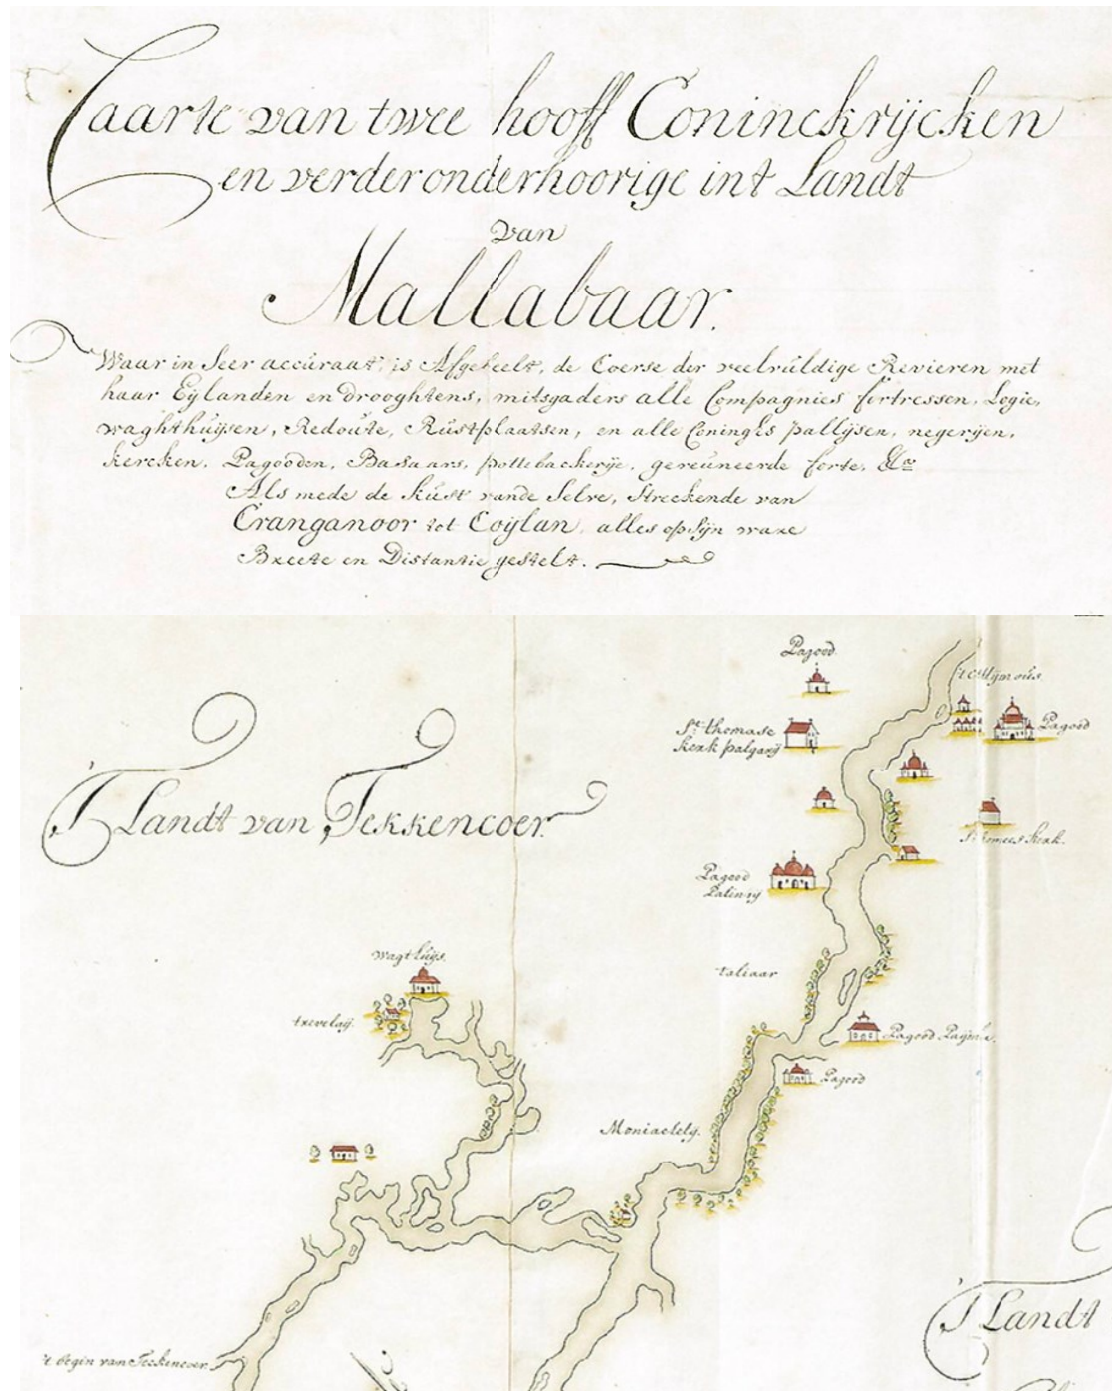 Caarte van twee hooff Coninckrijcken
en verder onderhoorige int Landt
van
Mallabaar.
Waar in seer accuraat, is Afgeteelt, de Coerse der veelvuldige Revieren met
haar Eylanden en drooghtens, mitsgaders alle Compagnies fortressen, Logie,
waghthuijsen, Redoute, Rustplaatsen, en alle Coninghs pallijsen, negerijen,
kercken, Pagooden, Basaars, pottebackerije, gereuneerde forte, &ca
Als mede de kust vande selve, streckende van
Cranganoor tot Coijlan, alles op sijn ware
Breete en Distantie gestelt.
Pagood.
St. thomase
kerk palgarij
Pagood
'T Landt van Tekkencoer.
kerk.
Pagood
wagthuijs.
taliaar
trevelaij.
Pagood
Pagood
Moniaelelij.
'T Landt
't begin van Teckencoer.